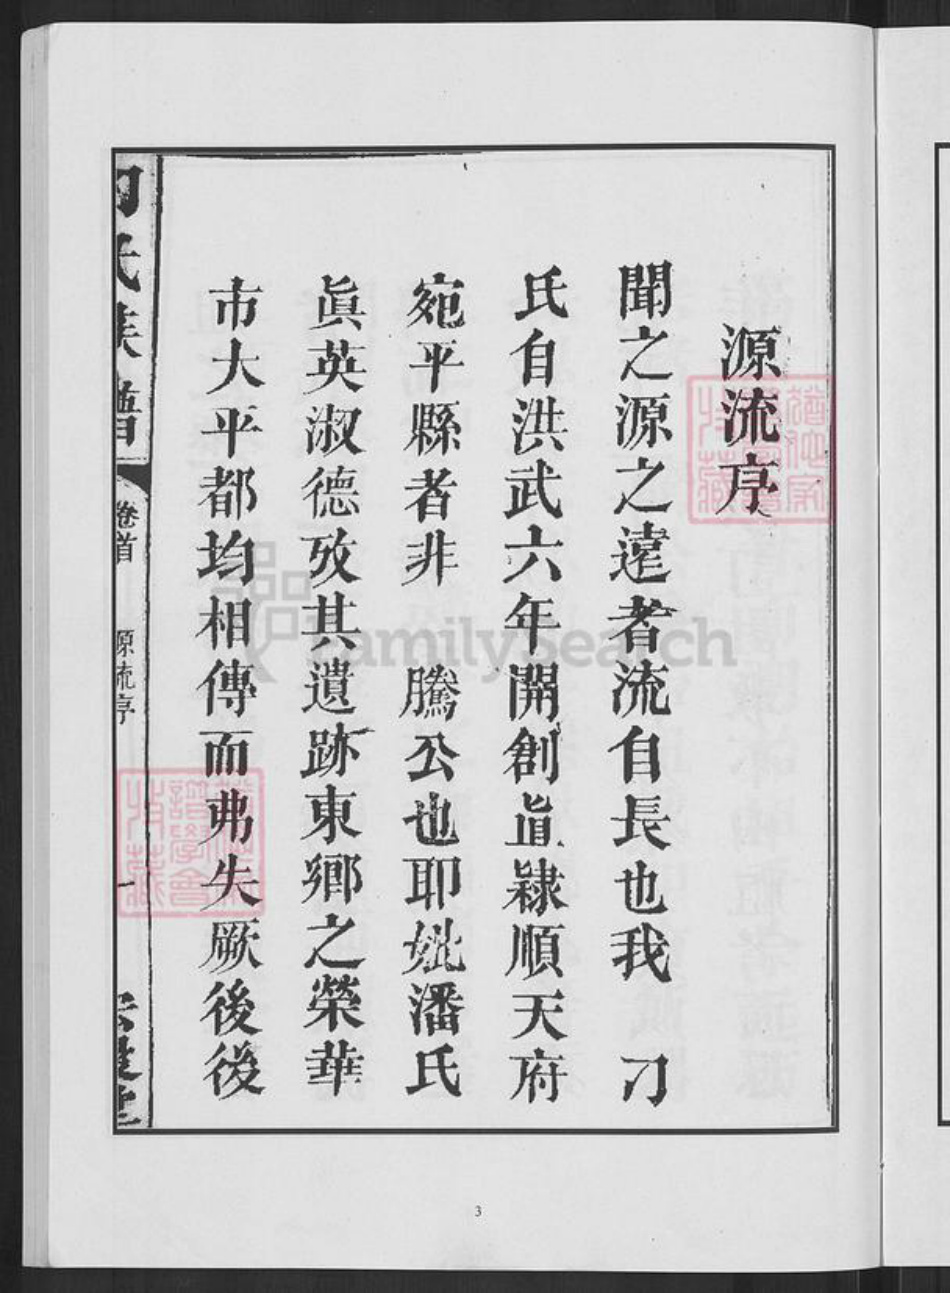 源流序
聞之源之遠者流自長也我 刁
氏自洪武六年開創直隸順天府
宛平縣者非 騰公也耶妣潘氏
眞英淑德攷其遺跡東鄉之榮華
市大平都均相傳而弗失厥後後
刁氏族譜
卷首
源流序
一
FamilySearch
3